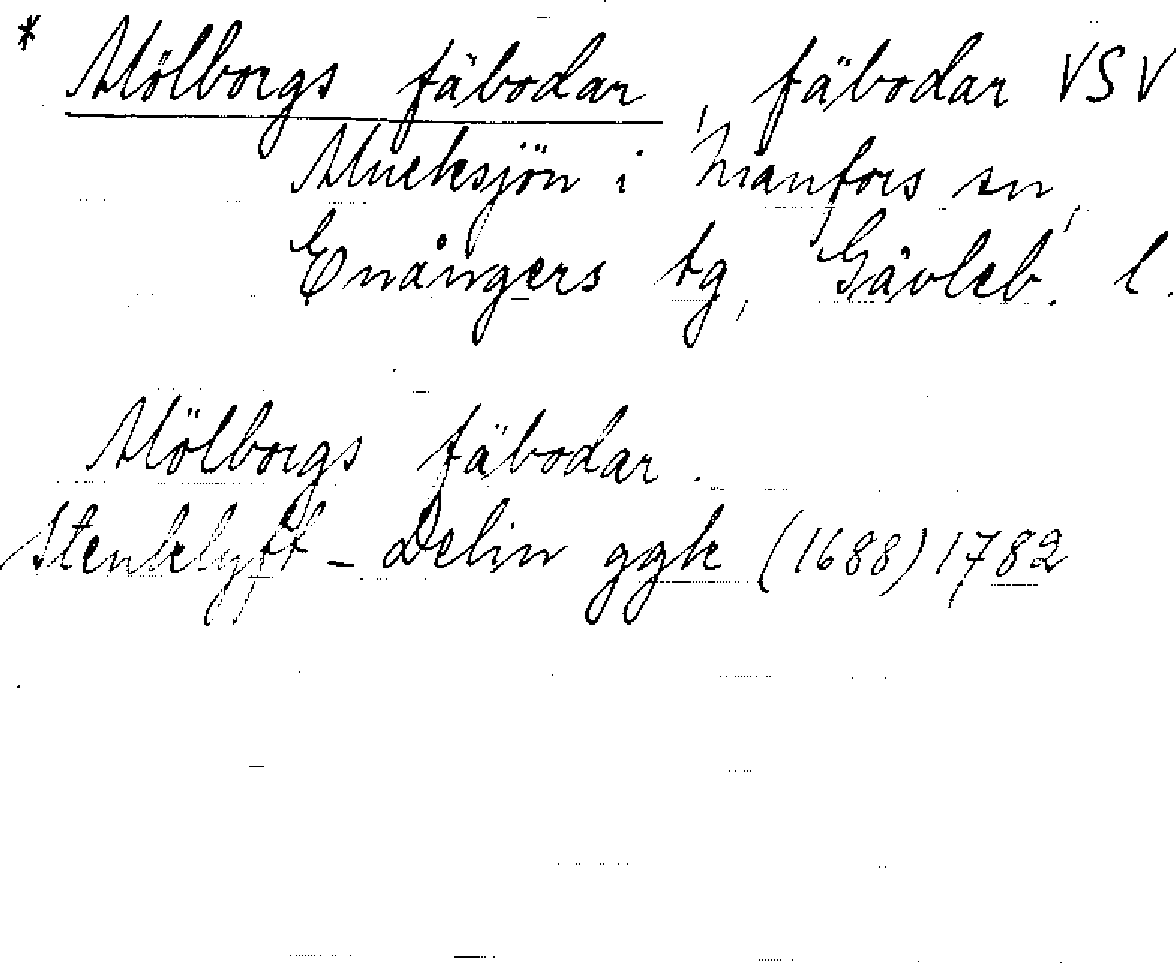 * Mölborgs fäbodar, fäbodar VSV
Mucksjön i Nianfors sn,
Enångers tg, Gävleb. l.
Mölborgs fäbodar.
Stenklyft - Delin ggk (1688) 1782